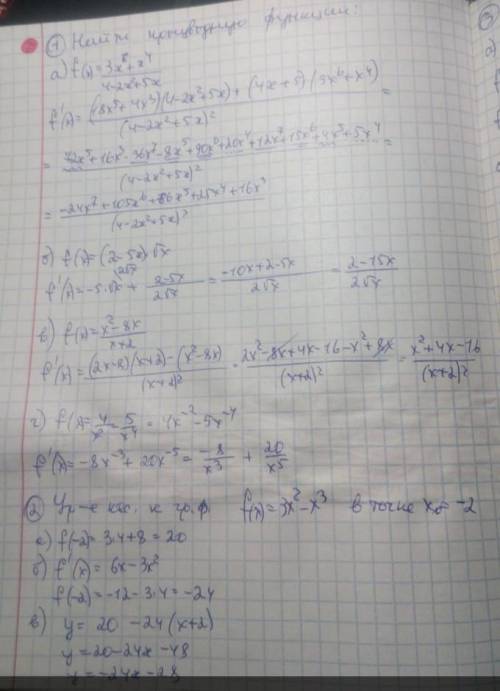 ① Найти производную функции:
а) f(x) = (3x⁶ + x⁴)/(4 - 2x² + 5x)
f'(x) = ((18x⁵ + 4x³)(4 - 2x² + 5x) + (4x + 5)(3x⁶ + x⁴))/(4 - 2x² + 5x)² =
= (72x⁵ + 16x³ - 36x⁷ - 8x⁵ + 90x⁶ + 20x⁴ + 12x⁷ + 15x⁶ + 4x⁵ + 5x⁴)/(4 - 2x² + 5x)² =
= (-24x⁷ + 105x⁶ + 86x⁵ + 25x⁴ + 16x³)/(4 - 2x² + 5x)²
б) f(x) = (2 - 5x)·√x
f'(x) = -5·√x + (2 - 5x)/(2√x) = (-10x + 2 - 5x)/(2√x) = (2 - 15x)/(2√x)
в) f(x) = (x² - 8x)/(x + 2)
f'(x) = ((2x - 8)(x + 2) - (x² - 8x))/(x + 2)² = (2x² - 8x + 4x - 16 - x² + 8x)/(x + 2)² = (x² + 4x - 16)/(x + 2)²
г) f(x) = 4/x² - 5/x⁴ = 4x⁻² - 5x⁻⁴
f'(x) = -8x⁻³ + 20x⁻⁵ = -8/x³ + 20/x⁵
② Ур-е кас. к гр. ф. f(x) = 3x² - x³ в точке x₀ = -2
а) f(-2) = 3·4 + 8 = 20
б) f'(x) = 6x - 3x²
f(-2) = -12 - 3·4 = -24
в) y = 20 - 24(x + 2)
y = 20 - 24x - 48
y = -24x - 28
③